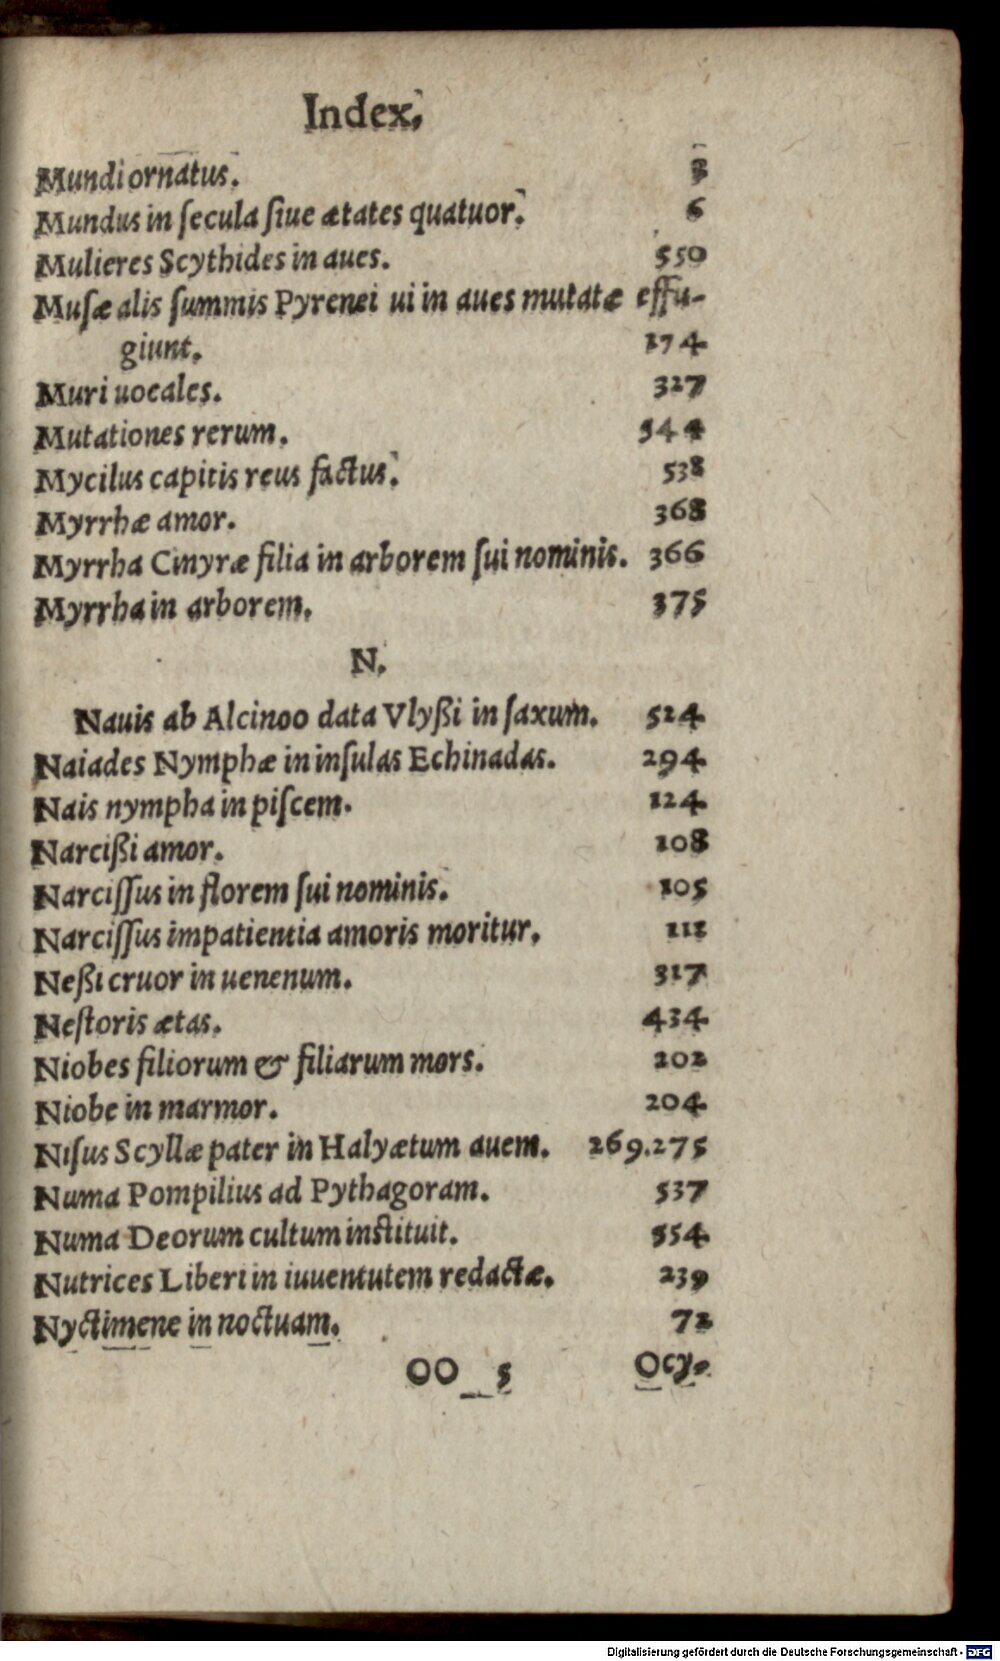 Index.
Mundi ornatus. 3
Mundus in ſecula ſiue ætates quatuor. 6
Mulieres Scythides in aues. 550
Muſæ alis ſummis Pyrenei ui in aues mutatæ effu-
giunt. 174
Muri uocales. 327
Mutationes rerum. 544
Mycilus capitis reus factus. 538
Myrrhæ amor. 368
Myrrha Cinyræ filia in arborem ſui nominis. 366
Myrrha in arborem. 375
N.
Nauis ab Alcinoo data Vlyßi in ſaxum. 524
Naiades Nymphæ in inſulas Echinadas. 294
Nais nympha in piſcem. 124
Narcißi amor. 108
Narciſſus in florem ſui nominis. 105
Narciſſus impatientia amoris moritur. 111
Neßi cruor in uenenum. 317
Neſtoris ætas. 434
Niobes filiorum & filiarum mors. 202
Niobe in marmor. 204
Niſus Scyllæ pater in Halyætum auem. 269.275
Numa Pompilius ad Pythagoram. 537
Numa Deorum cultum inſtituit. 554
Nutrices Liberi in iuuentutem redactæ. 239
Nyctimene in noctuam. 72
OO 5 Ocy-
Digitalisierung gefördert durch die Deutsche Forschungsgemeinschaft - DFG